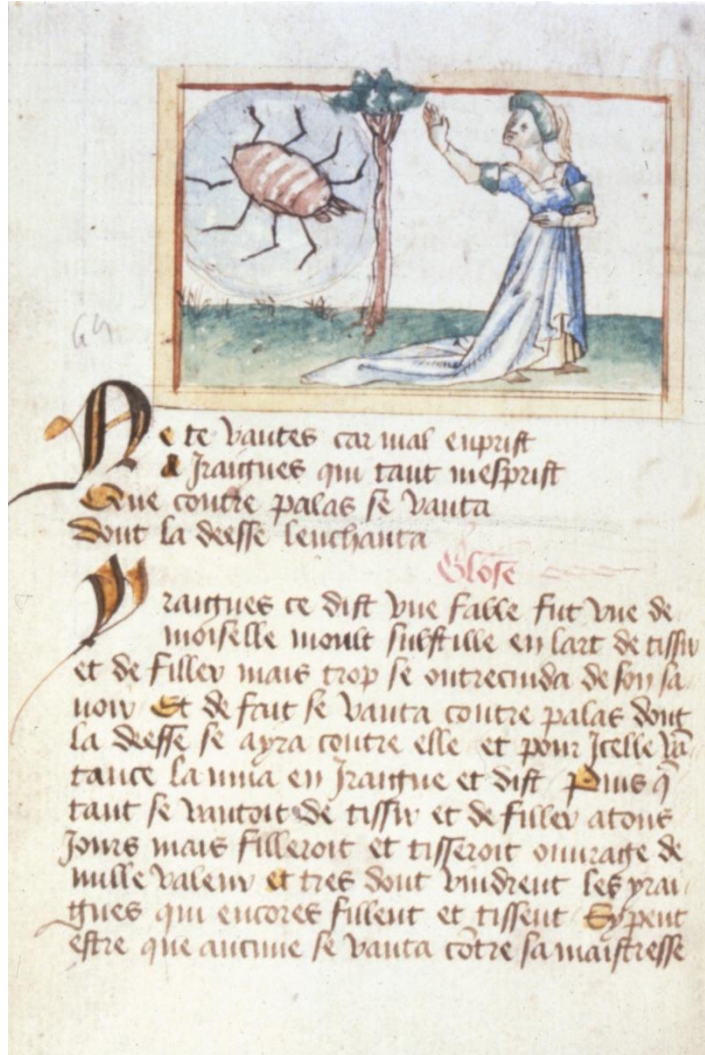 64
Ne te vantes car mal enprist
A Iraignes qui tant mesprist
Que contre palas se vanta
Dont la deesse lenchanta
Glose
Yraignes ce dist vne fable fut vne de
moiselle moult substille en lart de tissir
et de filler mais trop se outrecuida de son sa
uoir Et de fait se vanta contre palas dont
la deesse se ayra contre elle et pour Icelle vā
tance la mua en Iraigne et dist Puis q̄
tant se vantoit de tissir et de filler a tous
Iours mais filleroit et tisseroit ouurage de
nulle valeur et tres dont vindrent les yrai
gnes qui encores fillent et tissent Sy peut
estre que aucune se vanta cōtre sa maistresse